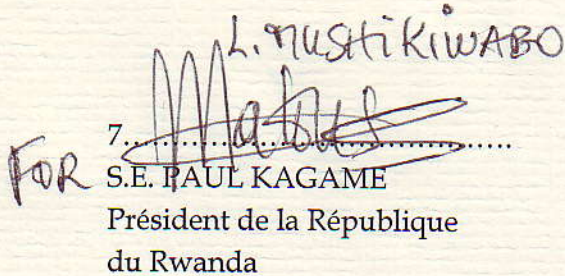 L. MUSHIKIWABO
7.
FOR S.E. PAUL KAGAME
Président de la République
du Rwanda